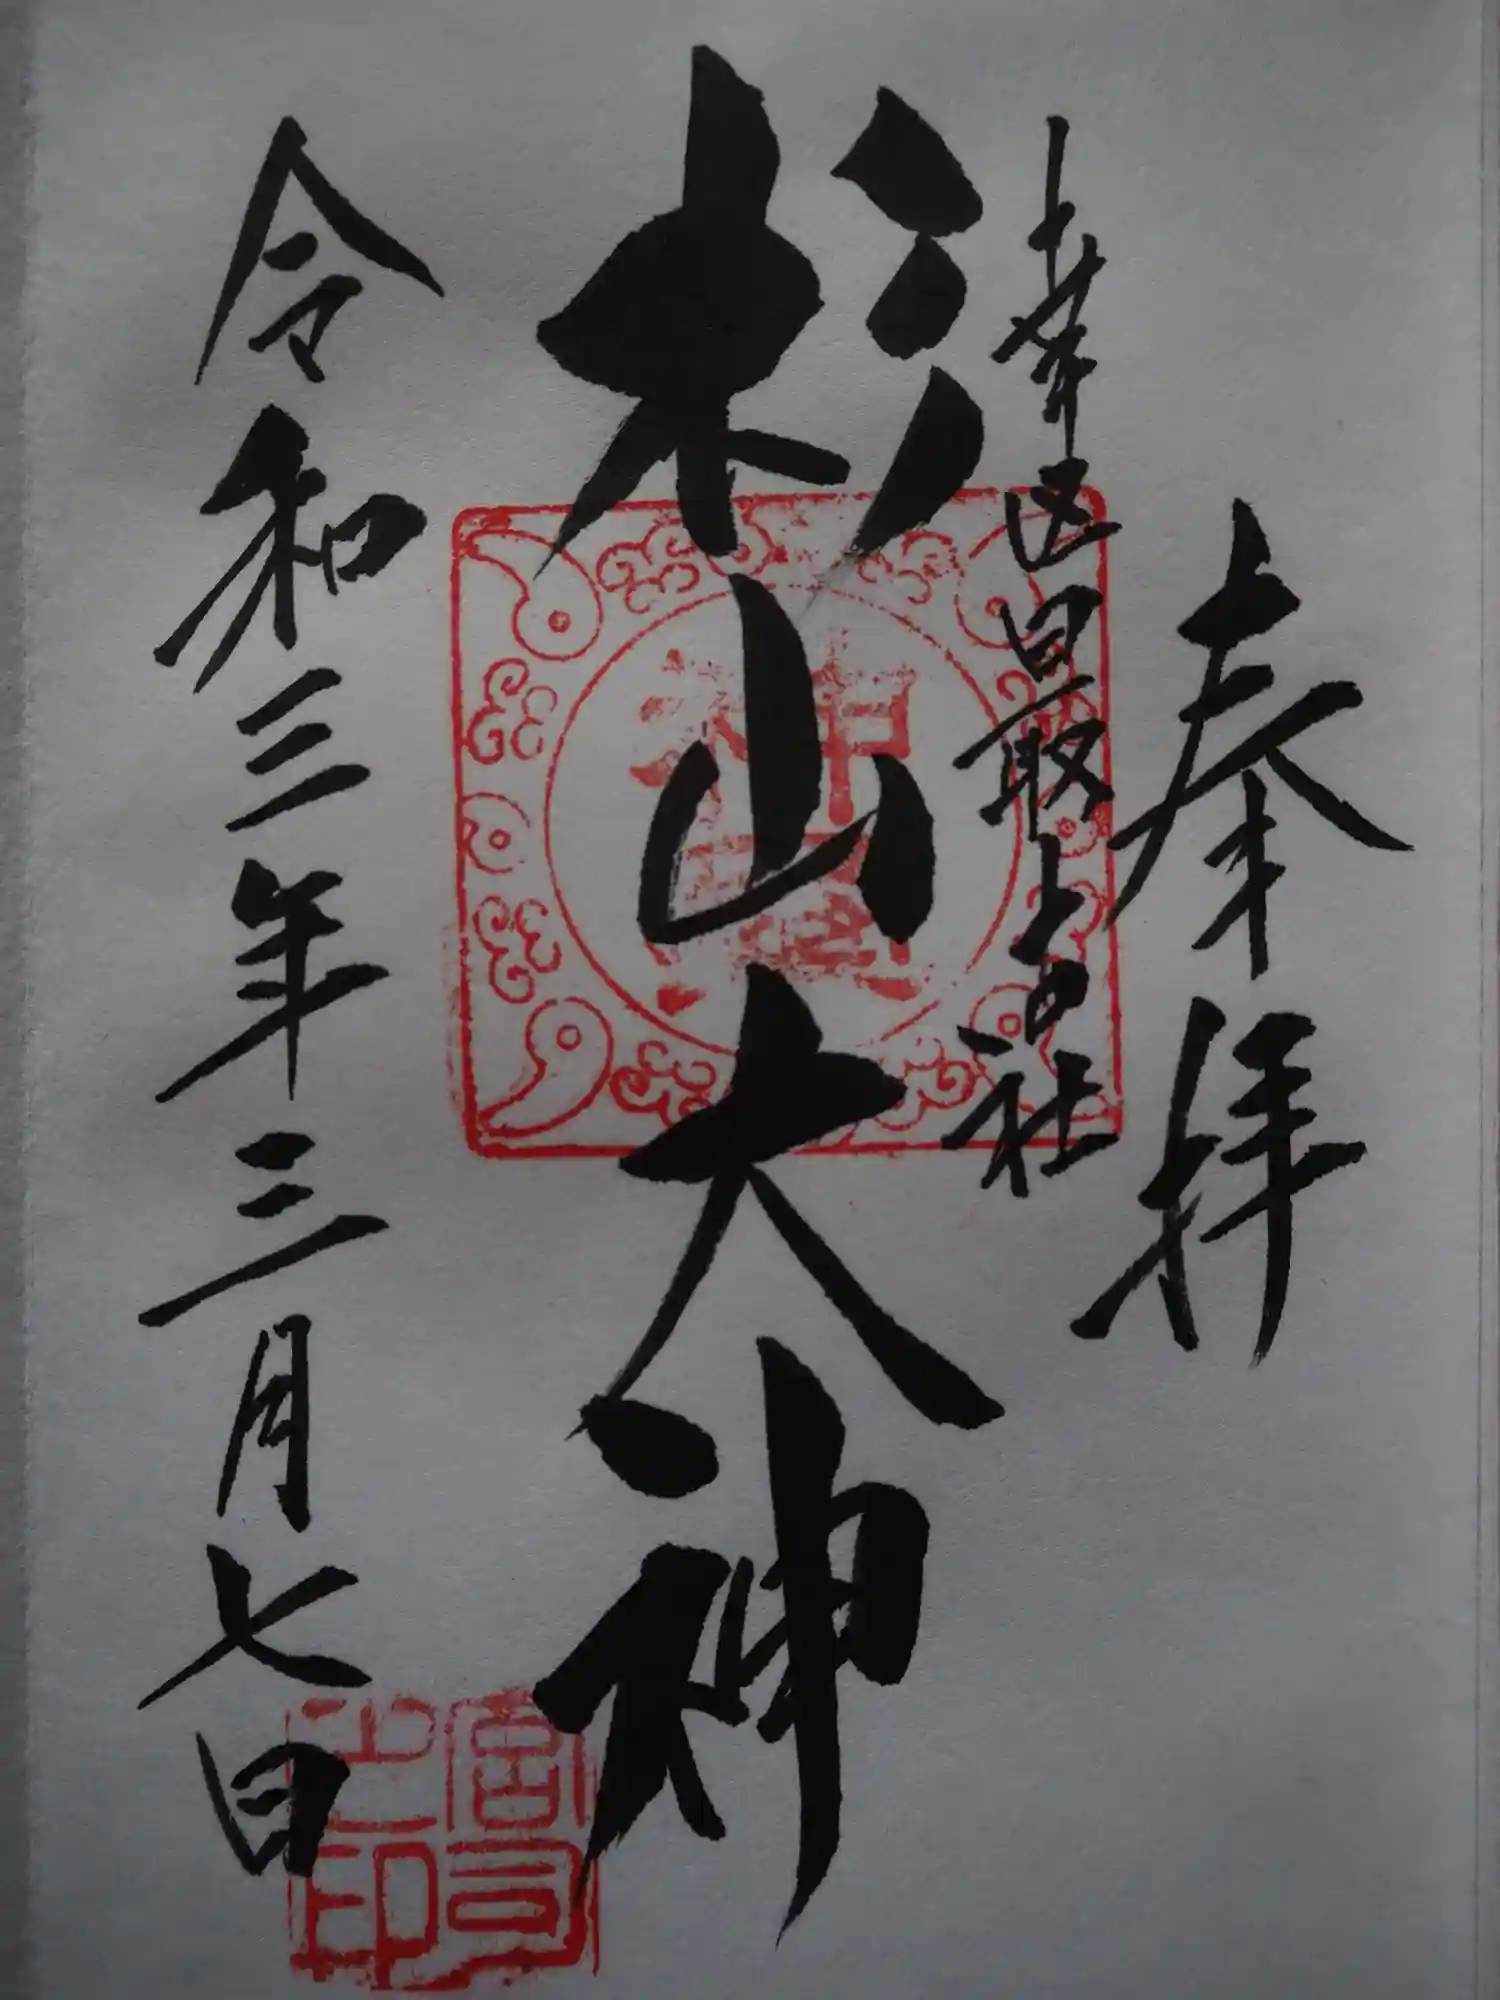 奉拝
区最古社
杉山大神
令和三年三月七日
宮司之印